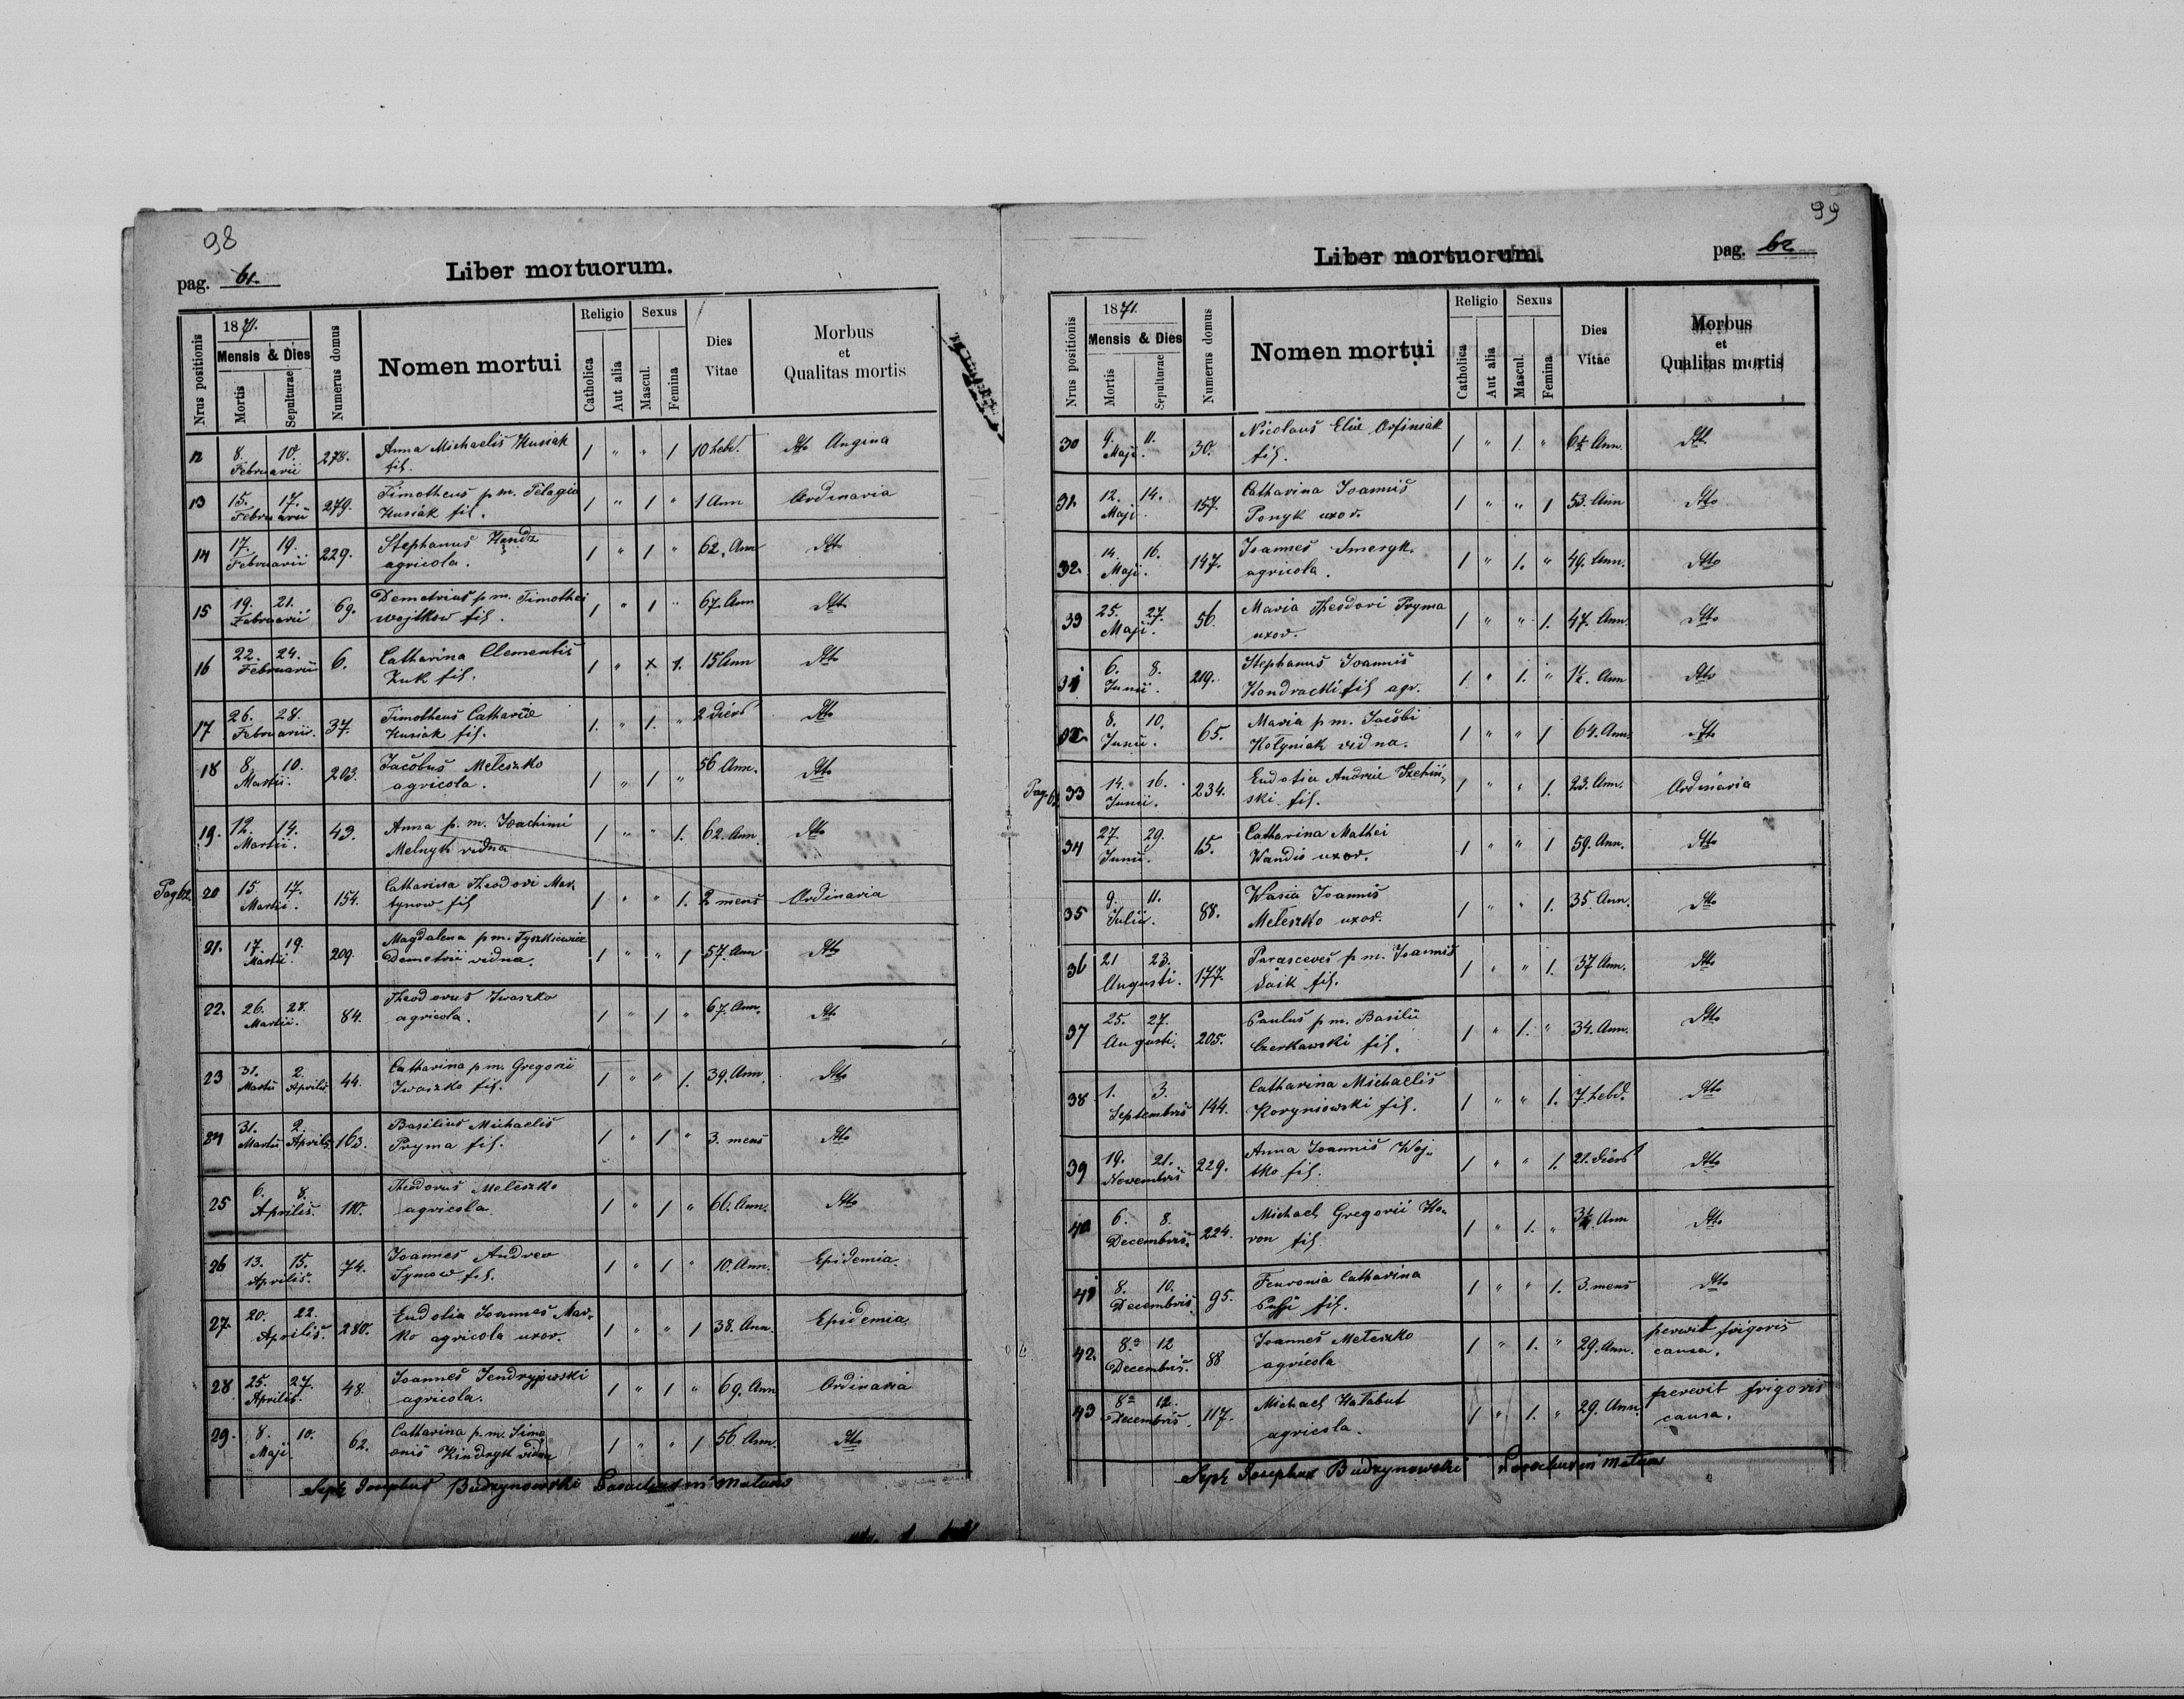 98
pag. 61.
Liber mortuorum.
Nrus positionis
1871.
Mensis & Dies
Mortis
Sepulturae
Numerus domus
Nomen mortui
Religio
Catholica
Aut alia
Sexus
Mascul.
Femina
Dies
Vitae
Morbus
et
Qualitas mortis
12 8. 10. 278. Anna Michaelis Husiak 1 " " 1 10 hebd. Dtto Angina
Februarii fil.
13 15. 17. 279. Timotheus p. m. Pelagia 1 " 1 " 1 Ann Ordinaria
Februarii Husiak fil.
14 17. 19. 229. Stephanus Handz 1 " 1 " 62. Ann Dtto
Februarii agricola.
15 19. 21. 69. Demetrius p. m. Timothei 1 " 1 " 67. Ann Dtto
Februarii wojtkow fil.
16 22. 24. 6. Catharina Clementis 1 " x 1. 15 Ann Dtto
Februarii Zuk fil.
17 26. 28. 37. Timotheus Catharie 1. " 1. " 2 diers Dtto
Februarii. Husiak fil.
18 8. 10. 203. Jacobus Meleszko 1 " 1 " 56 Ann. Dtto
Martii. agricola.
19. 12. 14. 43. Anna p. m. Joachimi 1 " " 1. 62. Ann Dtto
Martii. Melnyk vidna
Pag 62. 20 15. 17. 154. Catharina Theodori Mar- 1 " " 1. 2 mens Ordinaria
Martii. tynow fil
21. 17. 19. 209. Magdalena p m. Tyszkiewicz 1 " " 1 57. Ann Dtto
Martii. Demetrii vidna.
22. 26. 28. 84. Theodorus Iwaszko 1 " 1 " 67. Ann. Dtto
Martii. agricola.
23 31. 2. 44. Catharina p m. Gregorii 1 " " 1. 39. Ann. Dtto
Martii Aprilis Iwaszko fil.
24 31. 2. 163. Basilius Michaelis 1 " 1 " 3. mens Dtto
Martii Aprilis Pryma fil.
25 6. 8. 110. Theodorus Meleszko 1 " 1 " 66. Ann. Dtto
Aprilis. agricola
26 13. 15. 74. Joannes Andreo 1 " 1 " 10. Ann. Epidemia.
Aprilis. Tymow fil.
27. 20. 22. 280. Eudolia Joannes Mar- 1 " " 1 38. Ann. Epidemia.
Aprilis. ko agricola uxor.
28 25. 27. 48. Joannes Jendryjowski 1 " 1 " 69. Ann Ordinaria
Aprilis. agricola.
29. 8. 10. 62. Catharina p. m. Simo 1 " " 1 56 Ann. Dtto
Maji onis Kindryk vidna
Josephus Budzynowski Parochus in
99
Liber mortuorum.
pag. 62
Nrus positionis
1871.
Mensis & Dies
Mortis
Sepulturae
Numerus domus
Nomen mortui
Religio
Catholica
Aut alia
Sexus
Mascul.
Femina
Dies
Vitae
Morbus
et
Qualitas mortis
30 9. 11. 30. Nicolaus Elie Orfiniak 1 " 1. " Ann Dtt
Maji. fil.
31. 12. 14. 157. Catharina Joannis 1 " " 1 53. Ann Dtto
Maji. Ponyk uxor.
32. 14. 16. 147. Joannes Smeryk 1 " 1. " 49. Ann. Dtto
Maji. agricola.
33 25. 27. 56. Maria Theodori Pryma 1 " " 1. 47. Ann. Dtto
Maji. uxor.
6. 8. 219. Stephanus Joannis 1 " 1. " 1½. Ann Dtto
Junii. Kondracki fil agr.
8. 10. 65. Maria p m. Jacobi 1 " " 1 64. Ann. Dtto
Junii. Hołyniak vidna.
Pag. 33 14. 16. 234. Eudosia Andreie 1 " " 1. 23. Ann. Ordinaria
Junii. ski fil.
34 27. 29. 15. Catharina Mathei 1 " " 1 59. Ann. Dtto
Junii. Wandis uxor.
35 9. 11. 88. Wasia Joannis 1 " " 1. 35. Ann. Dtto
Julii. Meleszko uxor.
36 21 23. 177. Parasceves p m. Joannis 1 " " 1. 37 Ann. Dtto
Augusti. Saik fil.
37 25. 27. 205. Paulus p m. Basilii 1 " 1. " 34. Ann. Dtto
Augusti. Czerkawski fil.
38 1. 3. 144. Catharina Michaelis 1 " " 1. 7. hebd. Dtto
Septembris Koryniowski fil.
39 19. 21. 229. Anna Joannis Woj- 1 " " 1. 21. diers Dtto
Novembris tko fil.
40 6. 8. 224. Michael Gregorii Ho- 1 " 1. " Ann Dtto
Decembris. ron fil
41 8. 10. 95. Feuronia Catharina 1 " " 1. 3. mens Dtto
Decembris fil.
42. 8. 12 88 Joannes Meleszko 1 " 1. " 29. Ann. perevit frigoris
Decembris. agricola causa.
43 8 12. 117. Michael Hałabut 1 " 1. " 29. Ann. perevit frigoris
Decembris. agricola. causa.
Josephus Budzynowski Parochus in